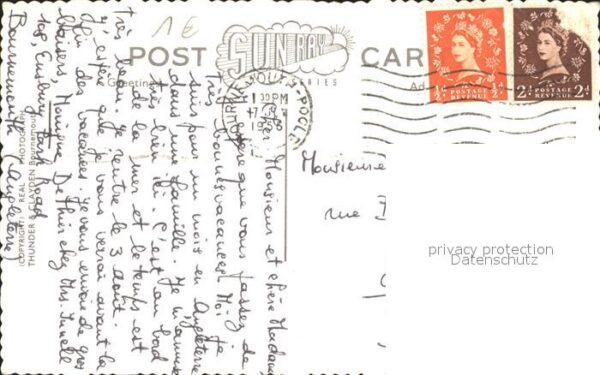 1 E
POST CARD
SUN RAY
SERIES
Greetings
Ad
BOURNEMOUTH-POOLE
1 30 PM
½ᵈ POSTAGE REVENUE ½ᵈ
2ᵈ POSTAGE REVENUE 2ᵈ
Monsieur
rue
privacy protection
Datenschutz
(COPYRIGHT) REAL PHOTOGRAPH
THUNDER & CLAYDEN Bournemouth
Cher Monsieur et chère Madame
J'espère que vous passez de
très bonnes vacances. Moi je
suis pour un mois en Angleterre
dans une famille. Je m'amuse
très bien ici. C'est au bord
de la mer et le temps est
très beau. Je rentre le 3 août.
J'espère que je vous verrai avant la
fin des vacances. Je vous envoie de gros
baisers, Monique chez Mrs.
108, Road
Bournemouth (Angleterre)